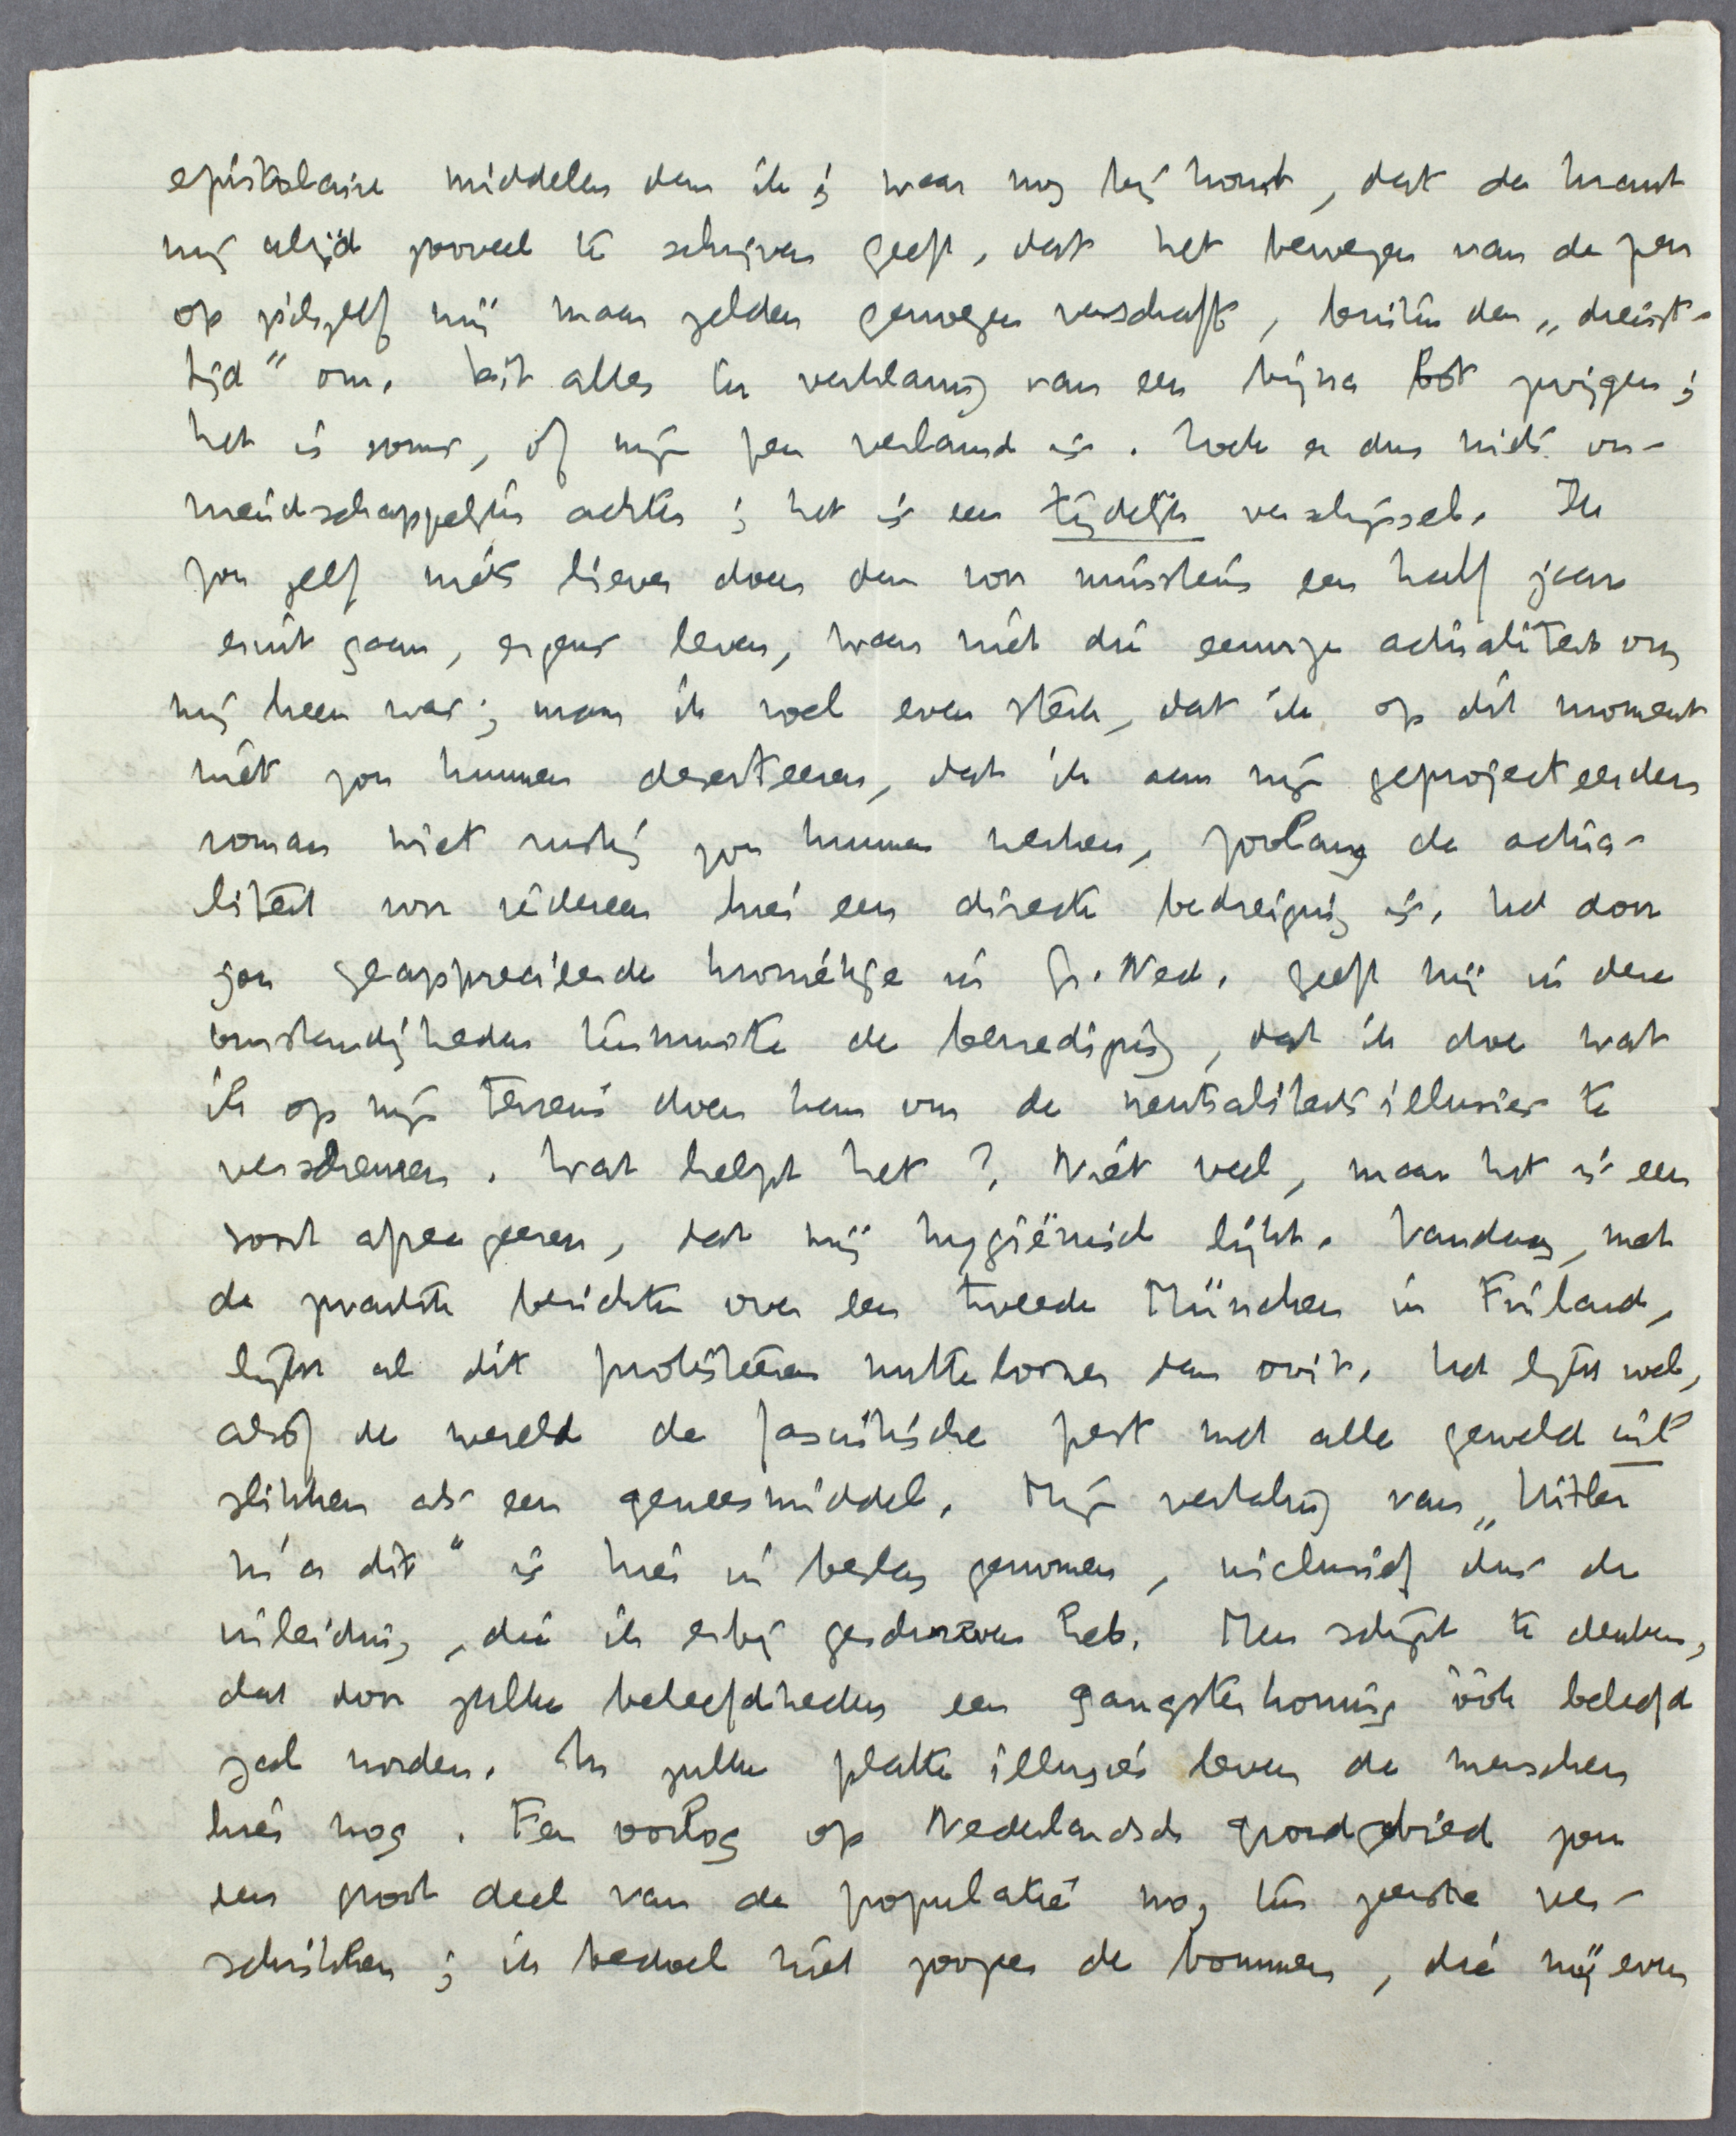 epistolaire middelen dan ik; waar nog bij komt, dat de krant
mij altijd zooveel te schrijven geeft, dat het bewegen van de pen
op zichzelf mij maar zelden genoegen verschaft, buiten den „dienst-
tijd” om. Dit alles ter verklaring van een bijna bot zwijgen;
het is soms, of mijn pen verlamd is. Zoek er dus niets on-
vriendschappelijks achter; het is een tijdelijk verschijnsel. Ik
zou zelf niets liever doen dan voor minstens een half jaar
eruit gaan, ergens leven, waar niet die eeuwige actualiteit om
mij heen was; maar ik voel even sterk, dat ik op dit moment
niet zou kunnen deserteeren, dat ik aan mijn geprojecteerden
roman niet rustig zou kunnen werken, zoolang de actua-
liteit voor iedereen hier een directe bedreiging is. Het door
jou geapprecieerde kroniekje in Gr. Ned. geeft mij in deze
omstandigheden tenminste de bevrediging, dat ik doe wat
ik op mijn terrein doen kan om de neutraliteitsillusies te
verscheuren. Wat helpt het? Niet veel, maar het is een
soort afreageeren, dat mij hygiënisch lijkt. Vandaag, met
de zwarte berichten over een tweede München in Finland,
lijkt al dit protesteeren nutteloozer dan ooit. Het lijkt wel,
alsof de wereld de fascistische pest met alle geweld wil
slikken als een geneesmiddel. Mijn vertaling van „Hitler
m'a dit” is hier in beslag genomen, inclusief dus de
inleiding, die ik erbij geschreven heb. Men schijnt te denken,
dat door zulke beleefdheden een gangsterkoning óók beleefd
zal worden. In zulke platte illusies leven de menschen
hier nog. Een oorlog op Nederlandsch grondgebied zou
een groot deel van de populatie nog ten zeerste ver-
schrikken; ik bedoel niet zoozeer de bommen, die mij even